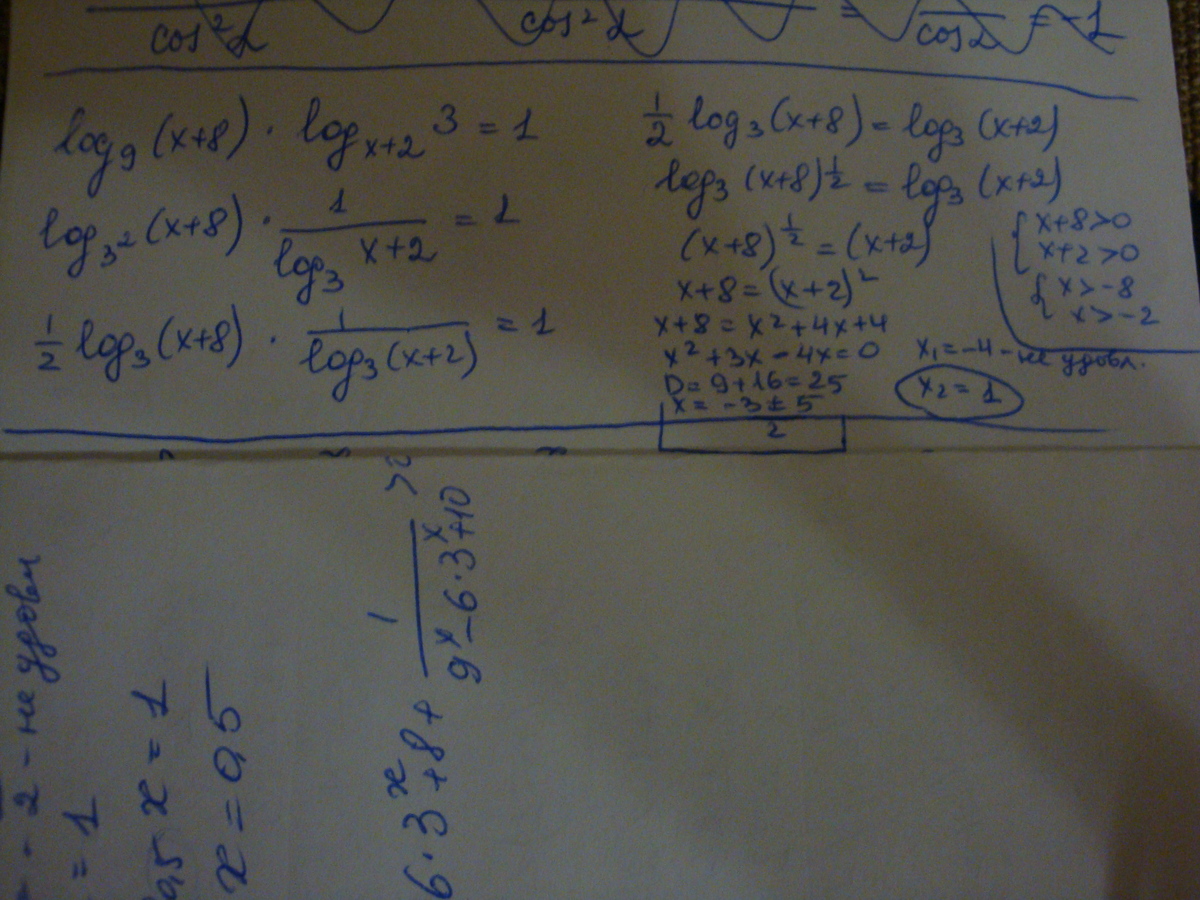 cos²α cos²α = cosα = -1
log₉(x+8) · logₓ₊₂ 3 = 1
log₃²(x+8) · 1/(log₃ x+2) = 1
1/2 log₃(x+8) · 1/(log₃(x+2)) = 1
1/2 log₃(x+8) = log₃(x+2)
log₃(x+8)^(1/2) = log₃(x+2)
(x+8)^(1/2) = (x+2)
x+8 = (x+2)²
x+8 = x²+4x+4
x²+3x-4x=0
D=9+16=25
x = -3±5
2
{ x+8>0
x+2>0
{ x>-8
x>-2
x₁=-4 - не удовл.
x₂=1
- 2 - не удовл
= 1
0,5 x = 1
x = 0,5
6·3ˣ+8+ 1/(9ˣ-6·3ˣ+10) >